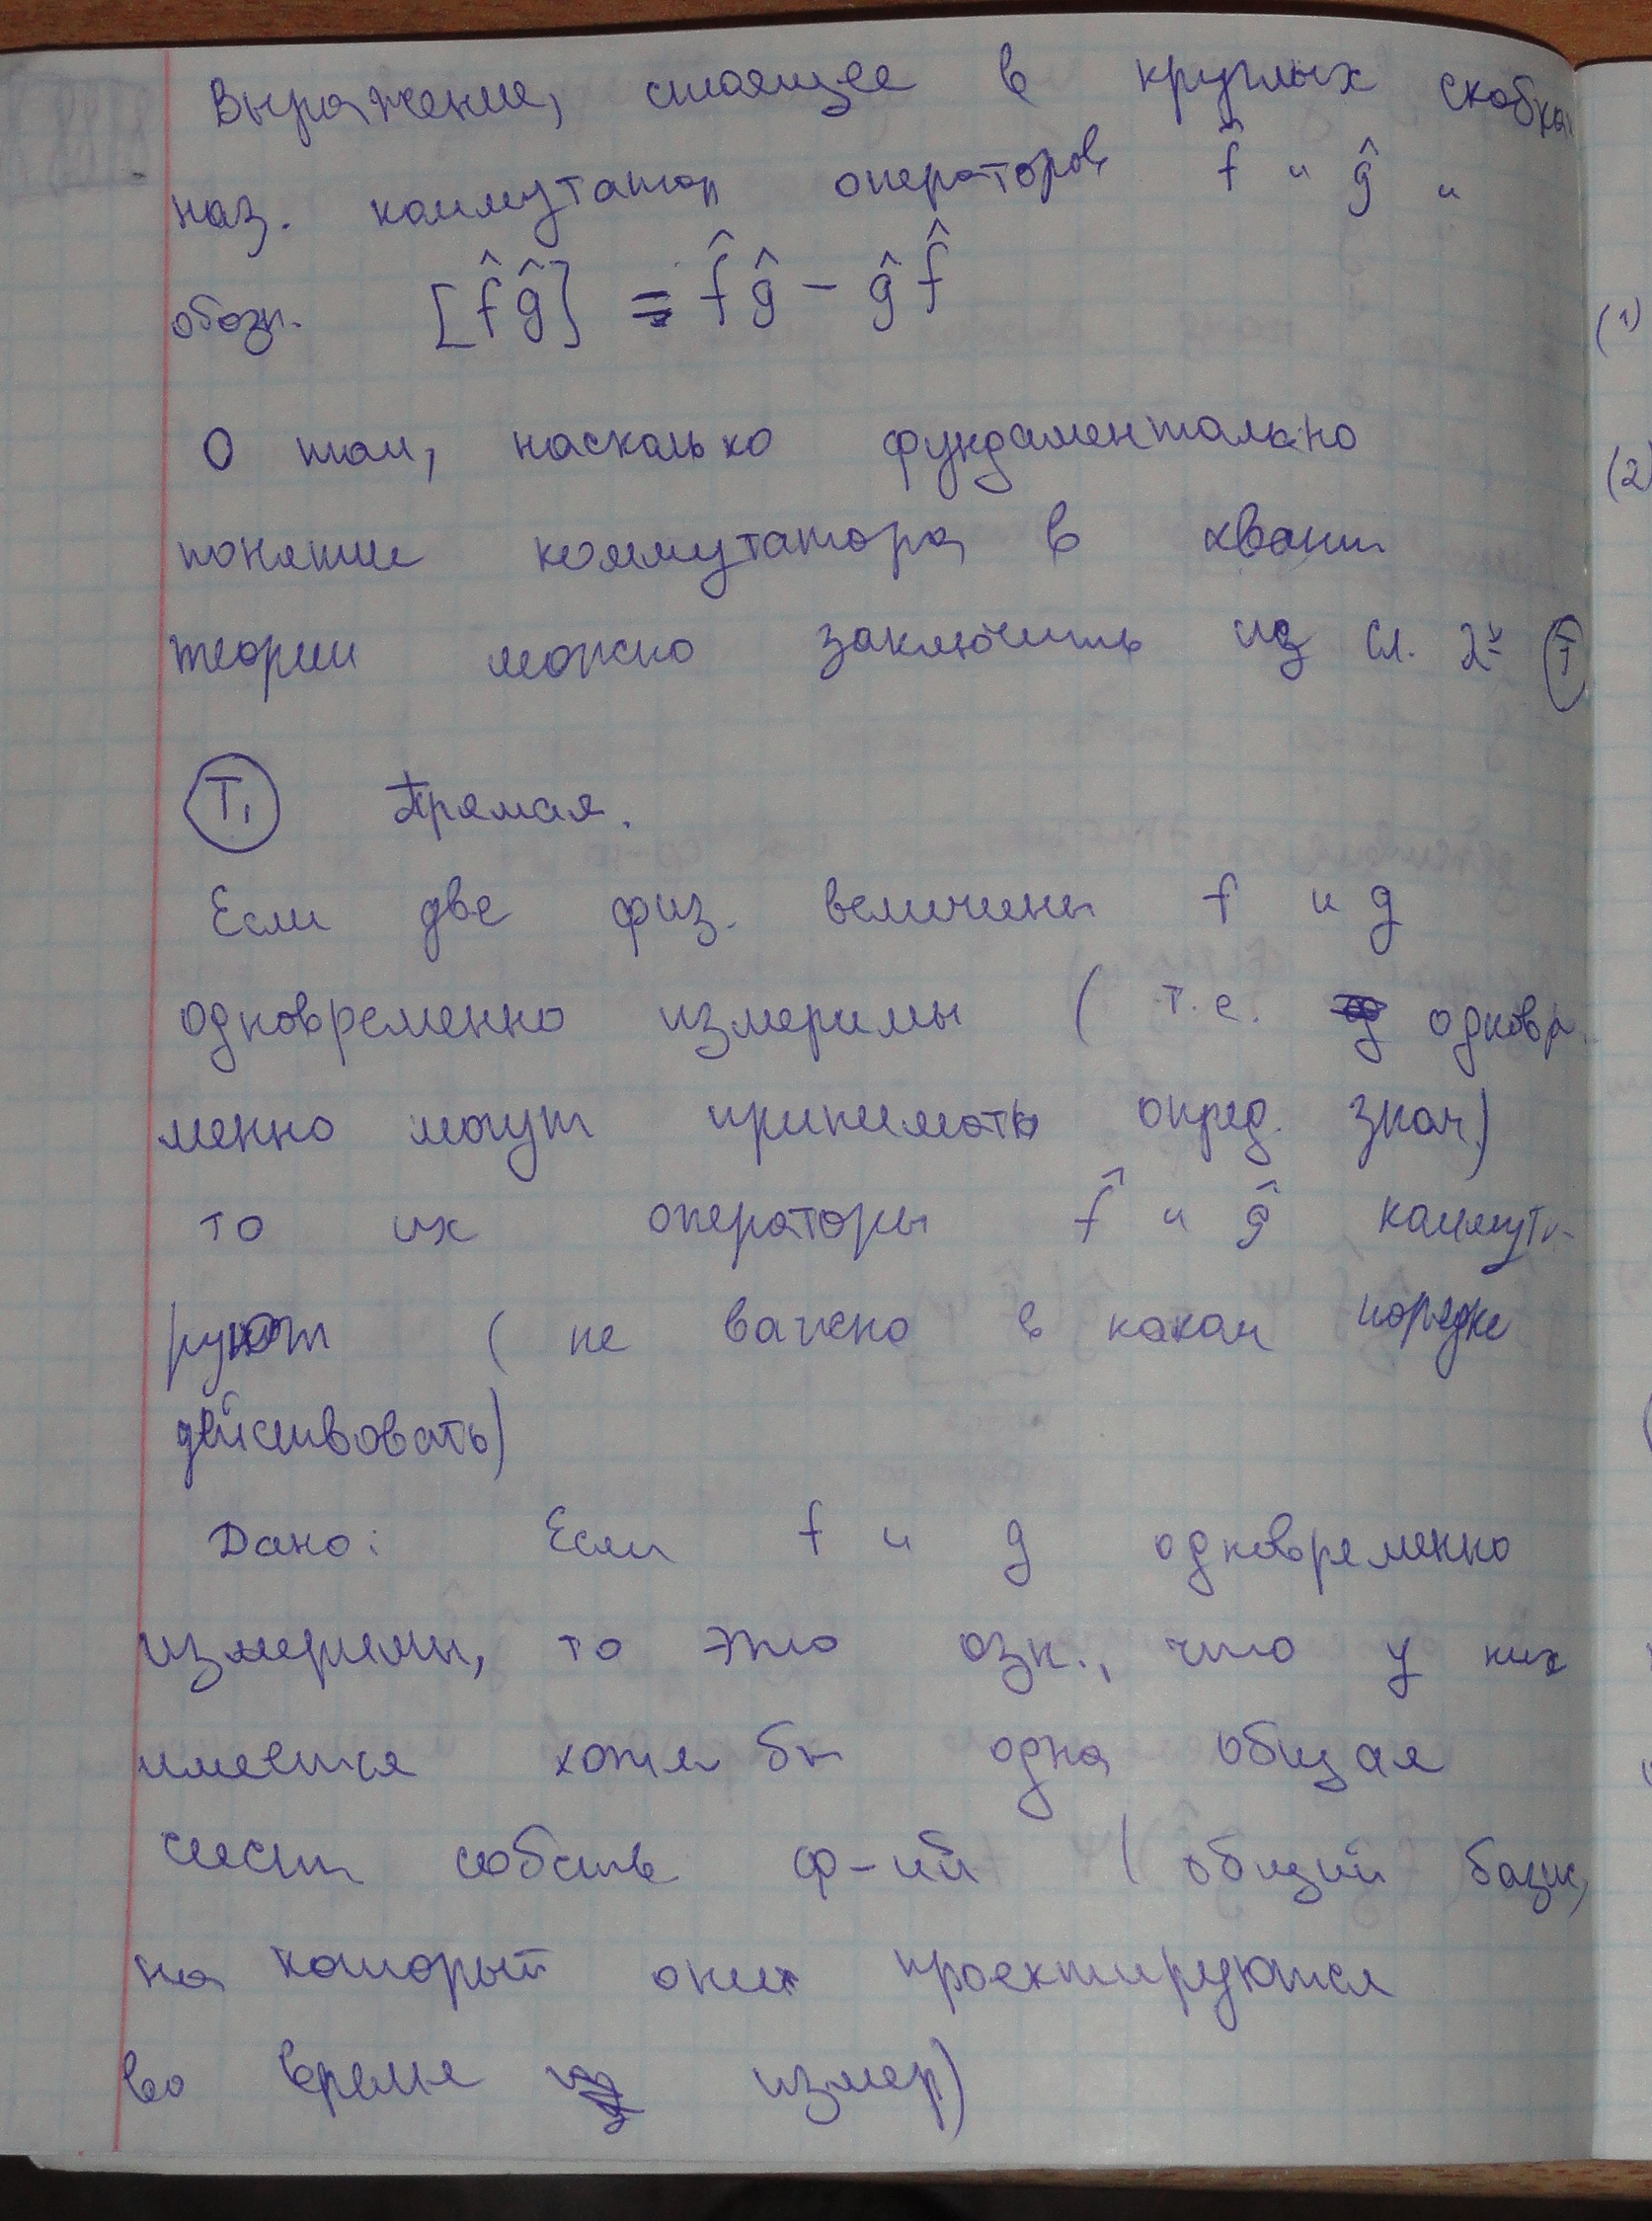 Выражение, стоящее в круглых скобках
наз. коммутатор операторов f̂ и ĝ и
обозн. [f̂ĝ] = f̂ĝ - ĝf̂
О том, насколько фундаментально
понятие коммутатора в квант
теории можно заключить из сл. 2х Т
Т₁ Прямая.
Если две физ. величины f и g
одновременно измеримы (т.е. одновр.
менно могут принимать опред. знач.)
то их операторы f̂ и ĝ коммути-
руют (не важно в каком порядке
действовать)
Дано: Если f и g одновременно
измеримы, то это озн., что у них
имеется хотя бы одна общая
сист собств ф-ий (общий базис,
на который они проектируются
во время измер)
(1)
(2)